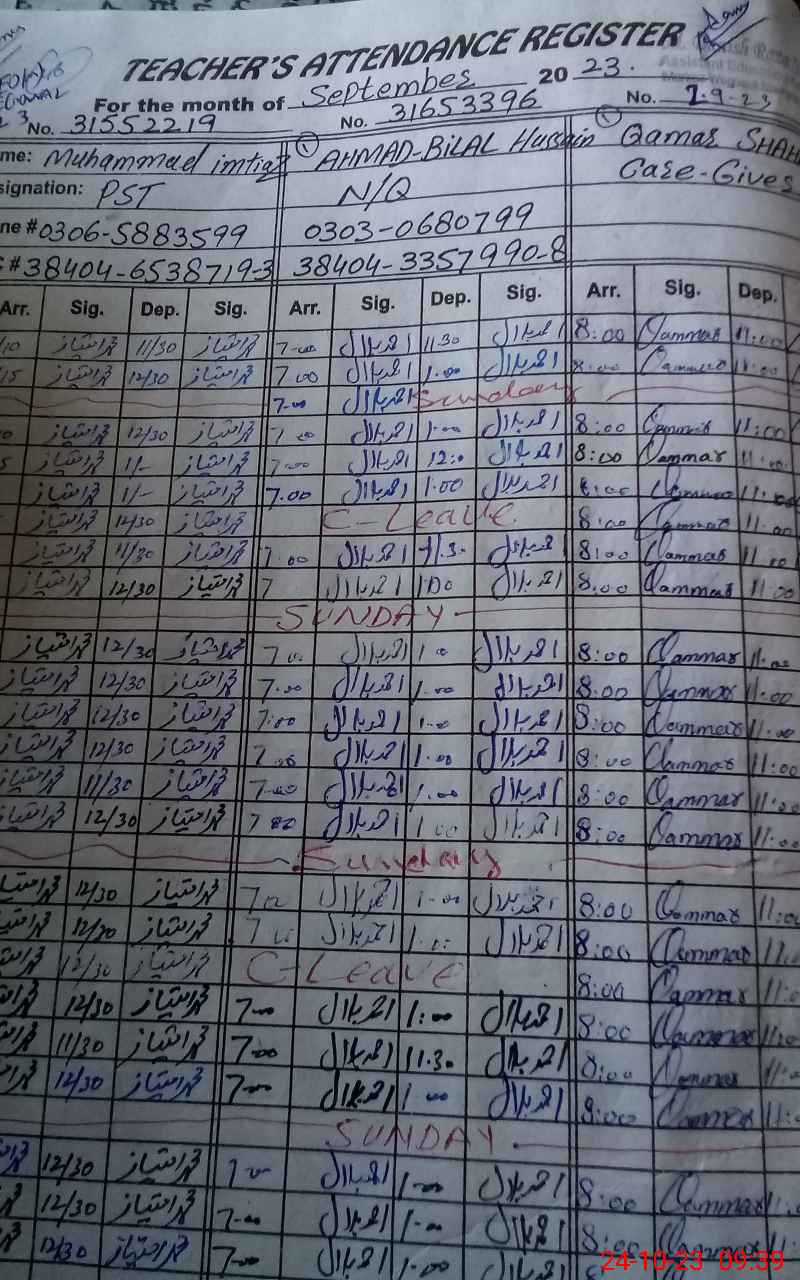 TEACHER'S ATTENDANCE REGISTER
For the month of September 20 23.
No. 31552219 No. 31653396 No. 2.9.23
me: Muhammad imtiaz AHMAD-BILAL Hussain Qamar SHAH
signation: PST N/Q Care-Giver
ne # 0306-5883599 0303-0680799
# 38404-6538719-3 38404-3357990-8
Arr. Sig. Dep. Sig. Arr. Sig. Dep. Sig. Arr. Sig. Dep.
10 محمد امتیاز 11/30 محمد امتیاز 7-00 احمد بلال 11 30 احمد بلال 8:00 Qammar 11:00
15 محمد امتیاز 12/30 محمد امتیاز 7 00 احمد بلال 1.00 احمد بلال 8:00 Qammar 11:00
7-00 احمد بلال Sunday
محمد امتیاز 12/30 محمد امتیاز 7 00 احمد بلال 1-00 احمد بلال 8:00 Qammar 11:00
5 محمد امتیاز 1/- محمد امتیاز 7-00 احمد بلال 12:0 احمد بلال 8:00 Qammar 11:00
محمد امتیاز 1/- محمد امتیاز 7.00 احمد بلال 1:00 احمد بلال 8:00 Qammar 11:00
محمد امتیاز 12/30 محمد امتیاز C-Leave 8:00 Qammar 11:00
محمد امتیاز 11/30 محمد امتیاز 7.00 احمد بلال 11.30 احمد بلال 8:00 Qammar 11:00
محمد امتیاز 12/30 محمد امتیاز 7 احمد بلال 1:00 احمد بلال 8:00 Qammar 11:00
SUNDAY
محمد امتیاز 12/30 محمد امتیاز 7 00 احمد بلال 1 0 احمد بلال 8:00 Qammar 11:00
محمد امتیاز 12/30 محمد امتیاز 7.00 احمد بلال 1.00 احمد بلال 8:00 Qammar 11:00
محمد امتیاز 12/30 محمد امتیاز 7:00 احمد بلال 1-00 احمد بلال 8:00 Qammar 11:00
محمد امتیاز 12/30 محمد امتیاز 7.00 احمد بلال 1.00 احمد بلال 8:00 Qammar 11:00
محمد امتیاز 11/30 محمد امتیاز 7-00 احمد بلال 1.00 احمد بلال 8:00 Qammar 11:00
محمد امتیاز 12/30 محمد امتیاز 7 00 احمد بلال 1 00 احمد بلال 8:00 Qammar 11:00
Sunday
محمد امتیاز 12/30 محمد امتیاز 7 00 احمد بلال 1-00 احمد بلال 8:00 Qammar 11:00
محمد امتیاز 12/30 محمد امتیاز 7 00 احمد بلال 1.00 احمد بلال 8:00 Qammar 11:
محمد امتیاز 12/30 محمد امتیاز C-LEAVE 8:00 Qammar 11:0
محمد امتیاز 12/30 محمد امتیاز 7-00 احمد بلال 1:00 احمد بلال 8:00 Qammar 11:0
محمد امتیاز 11/30 محمد امتیاز 7.00 احمد بلال 11.30 احمد بلال 8:00 Qammar 11:
محمد امتیاز 12/30 محمد امتیاز 7-00 احمد بلال 1 00 احمد بلال 8:00 Qammar 11:
SUNDAY
12/30 محمد امتیاز 7-00 احمد بلال 1-00 احمد بلال 8:00 Qammar 11:
12/30 محمد امتیاز 7-00 احمد بلال 1-00 احمد بلال 8:00 Qammar
12/30 محمد امتیاز 7-00 احمد بلال 1.00 احمد بلال
24-10-23 09:39